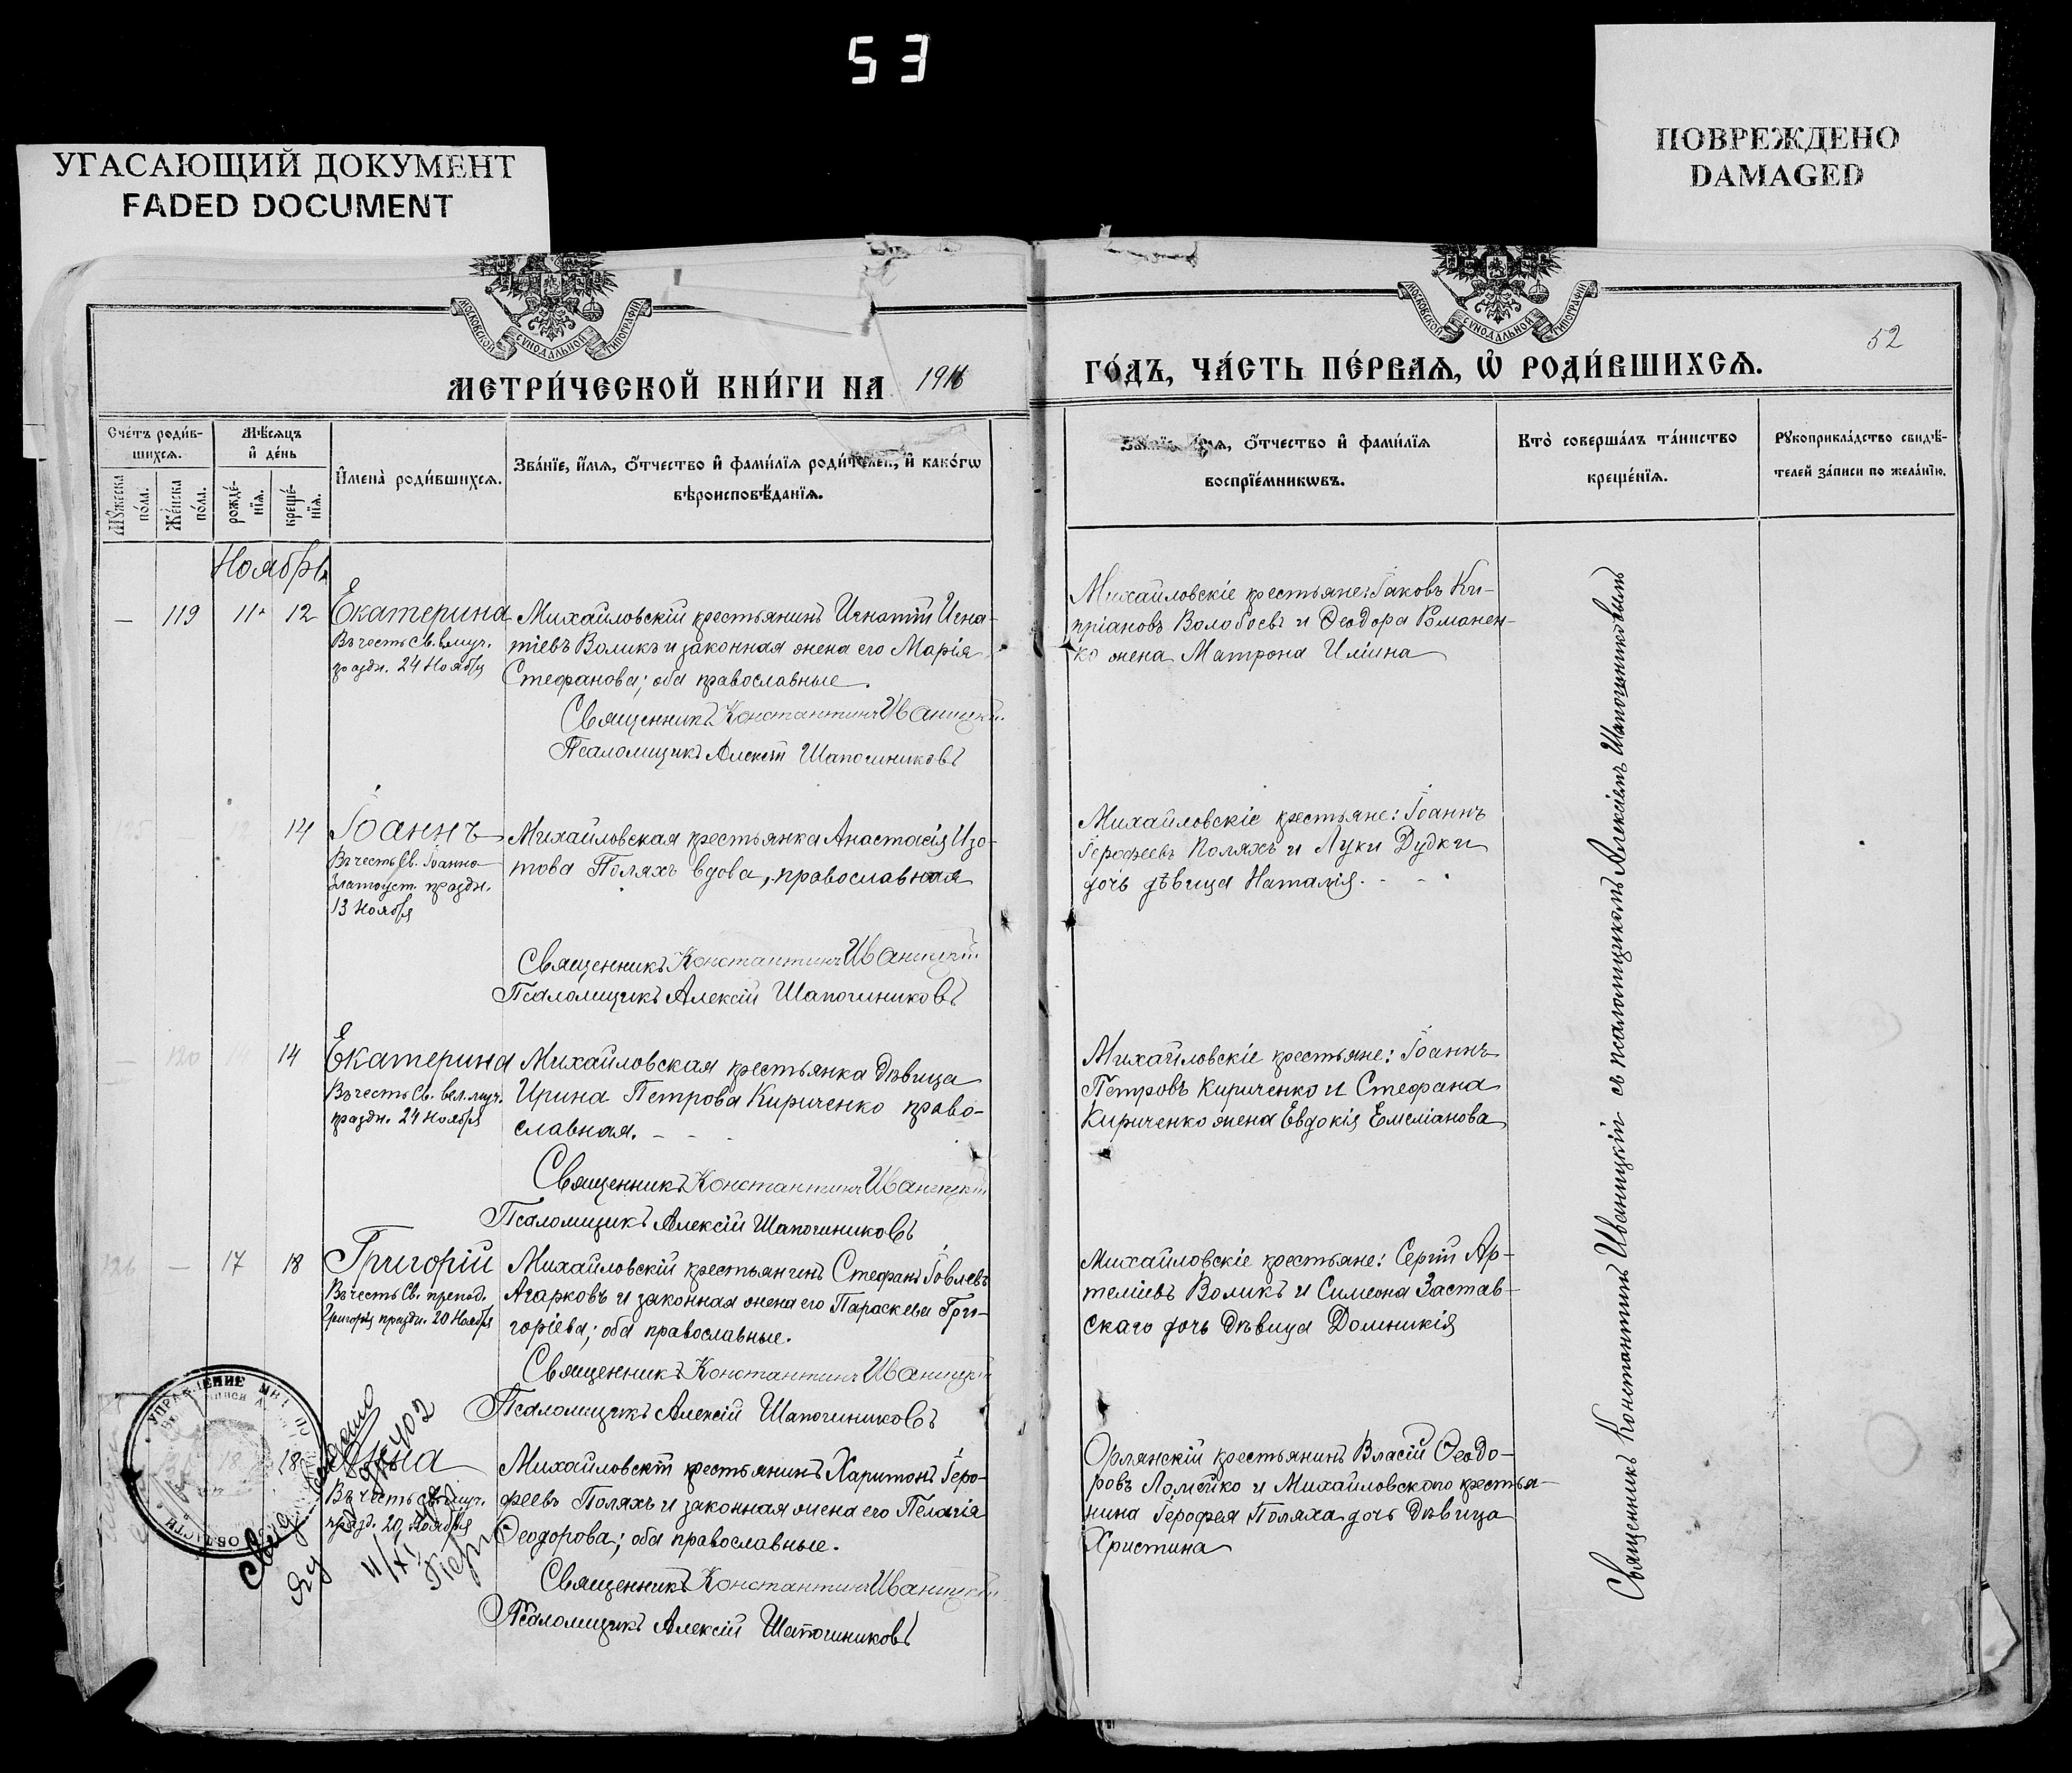 53
УГАСАЮЩИЙ ДОКУМЕНТ
FADED DOCUMENT
ПОВРЕЖДЕНО
DAMAGED
МОСКОВСКОЙ СѴНОДАЛЬНОЙ ТИПОГРАФІИ
МОСКОВСКОЙ СѴНОДАЛЬНОЙ ТИПОГРАФІИ
52
МЕТРИ́ЧЕСКОЙ КНИ́ГИ НА 1916
ГО́ДЪ, ЧА́СТЬ ПЕ́РВАѦ, Ѿ РОДИ́ВШИХСѦ.
Сче́тъ роди́в-
шихсѧ.
Мѣ́сѧцъ
и҆ де́нь
Мꙋ́жеска
по́ла.
Же́нска
по́ла.
рожде́-
нїѧ.
креще́-
нїѧ.
И҆мена̀ роди́вшихсѧ.
Зва́нїе, и҆́мѧ, ѻ҆́тчество и҆ фами́лїѧ роди́телей, и҆ какѡ́гѡ
вѣроисповѣ́данїѧ.
ѻ҆́тчество и҆ фами́лїѧ
воспрїе́мникѡвъ.
Кто̀ соверша́лъ та́инство
креще́нїѧ.
Рꙋкоприкла́дство свидѣ́-
телей за́писи по жела́нїю.
Ноябрь
— 119 11 12 Екатерина
Въ честь Св. влмуч.
праздн. 24 Ноября
Михайловскій крестьянинъ Игнатій Игна-
тіевъ Воликъ и законная жена его Марія
Стефанова; оба православные.
Священникъ Константинъ Иваницкій
Псаломщикъ Алексій Шапошниковъ
Михайловскіе крестьяне: Іаковъ Ки-
пріановъ Волобоевъ и Ѳеодора Романен-
ко жена Матрона Иліина
125 — 12 14 Іоаннъ
Въ честь Св. Іоанна
Златоуст. праздн.
13 Ноября
Михайловская крестьянка Анастасія Изо-
това Поляхъ вдова, православная
Священникъ Константинъ Иваницкій
Псаломщикъ Алексій Шапошниковъ
Михайловскіе крестьяне: Іоаннъ
Іерофеевъ Поляхъ и Луки Дудки
дочь дѣвица Наталія.
— 120 14 14 Екатерина
Въ честь Св. вел. муч.
праздн. 24 Ноября
Михайловская крестьянка дѣвица
Ирина Петрова Кириченко право-
славная.
Священникъ Константинъ Иваницкій
Псаломщикъ Алексій Шапошниковъ
Михайловскіе крестьяне: Іоаннъ
Петровъ Кириченко и Стефана
Кириченко жена Евдокія Емеліанова
126 — 17 18 Григорій
Въ честь Св. препод.
Григорія праздн. 20 Ноября
Михайловскій крестьянинъ Стефанъ Іовлевъ
Агарковъ и законная жена его Параскева Гри-
горіева; оба православные.
Священникъ Константинъ Иваницкій
Псаломщикъ Алексій Шапошниковъ
Михайловскіе крестьяне: Сергій Ар-
теміевъ Воликъ и Симеона Застав-
скаго дочь дѣвица Домникія
18
Въ честь Св. муч.
празд. 20 Ноября
Михайловскій крестьянинъ Харитонъ Іеро-
феевъ Поляхъ и законная жена его Пелагія
Ѳеодорова; оба православные.
Священникъ Константинъ Иваницкій
Псаломщикъ Алексій Шапошниковъ
Орлянскій крестьянинъ Власій Ѳеодо-
ровъ Ломейко и Михайловского крестья-
нина Іерофея Поляха дочь дѣвица
Христина
Священникъ Константинъ Иваницкій съ псаломщикомъ Алексіемъ Шапошниковымъ
УПРАВЛЕНИЕ
ОБЛАСТИ